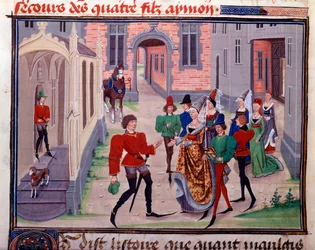 secours des quatre filz aimon.
dist listoire que quant maulgis